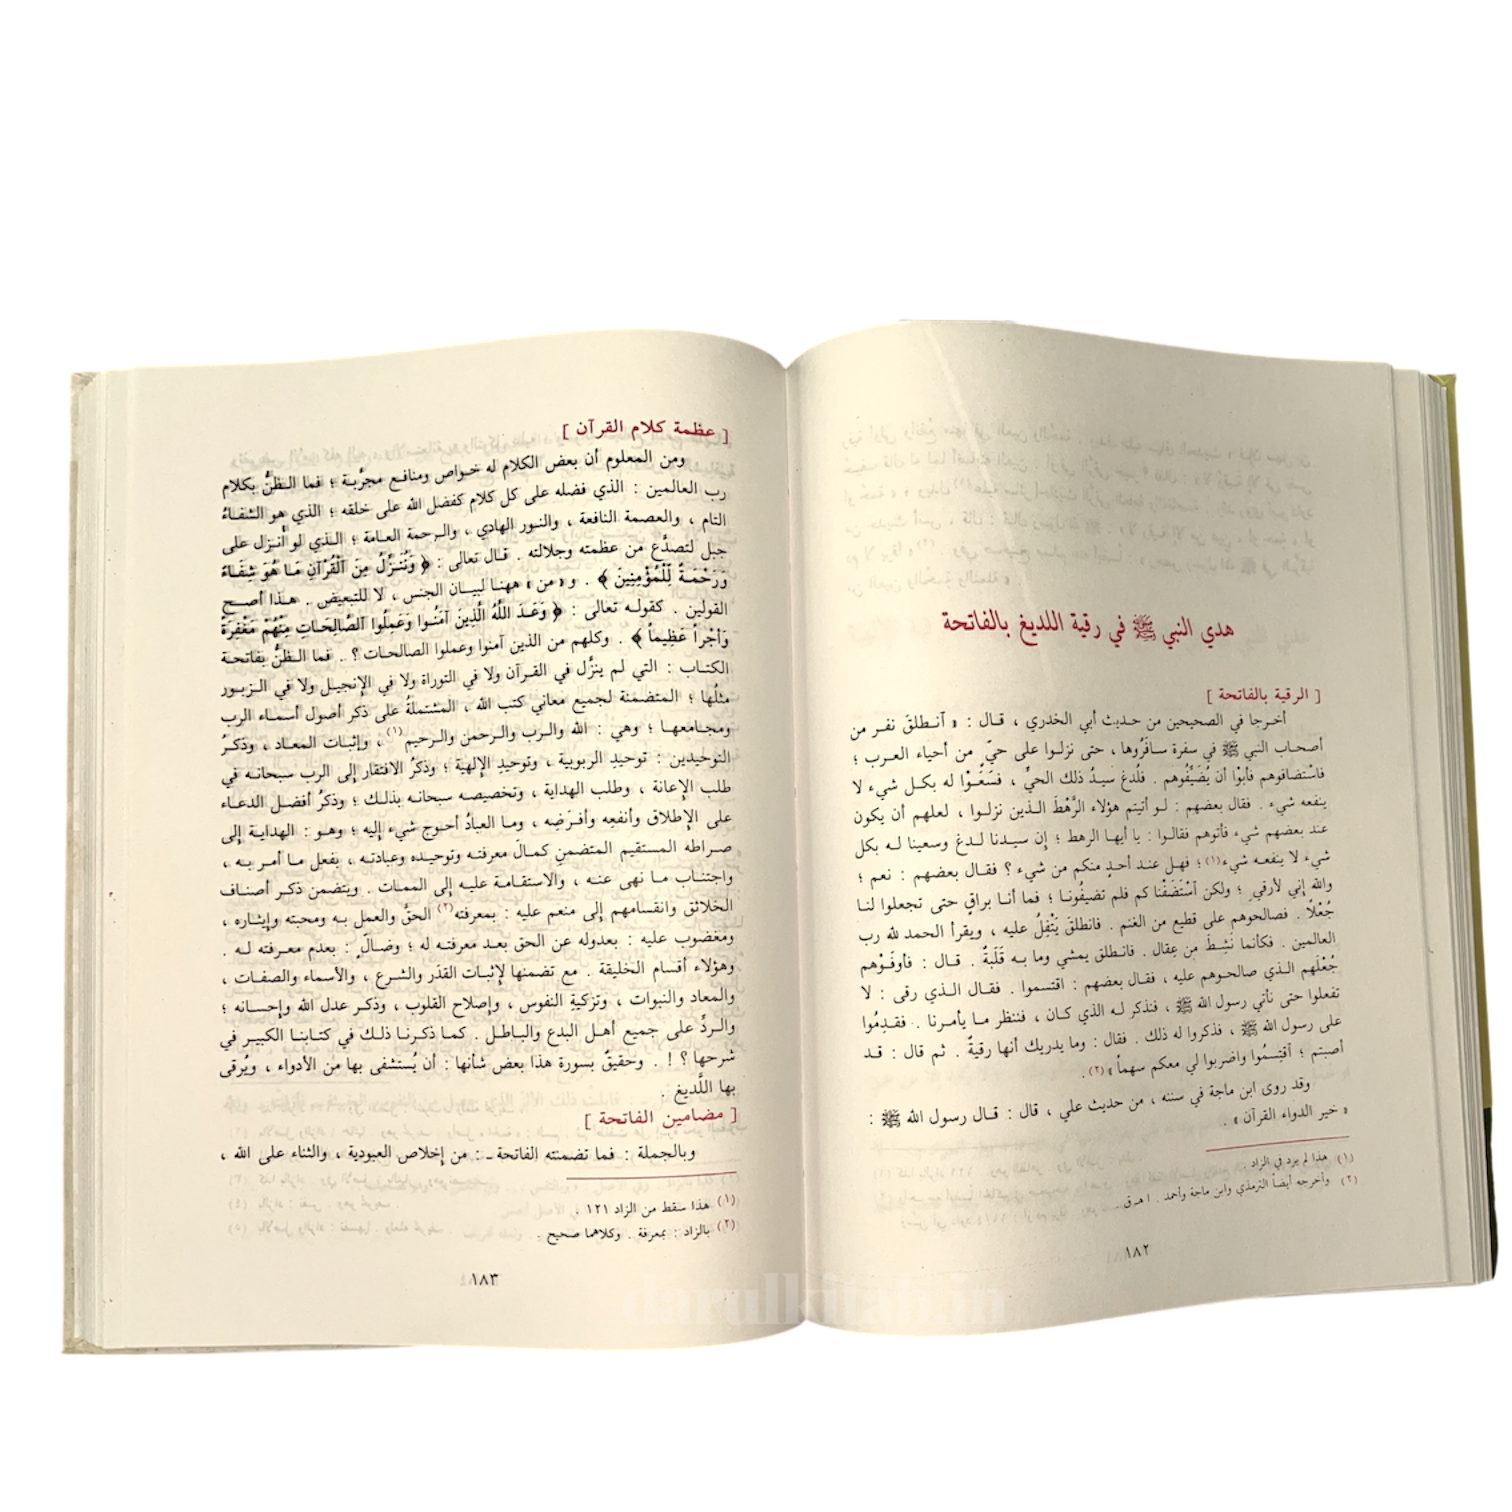 هدي النبي ﷺ في رقية اللديغ بالفاتحة
[ الرقية بالفاتحة ]
أخرجا في الصحيحين من حديث أبي الخدري ، قال : « آنطلقَ نفر من
أصحاب النبي ﷺ في سفرة سافَرُوها ، حتى نزلوا على حيٍّ من أحياء العرب ؛
فاسْتضافوهم فأبَوْا أن يُضَيِّفُوهم . فلُدغ سيدُ ذلك الحيِّ ، فسَعَوْا له بكل شيء لا
ينفعه شيء . فقال بعضهم : لو أتيتم هؤلاء الرَّهْطَ الذين نزلوا ، لعلهم أن يكون
عند بعضهم شيء فأتوهم فقالوا : يا أيها الرهط ؛ إن سيدنا لدغ وسعينا له بكل
شيء لا ينفعه شيء(١) ؛ فهل عند أحدٍ منكم من شيء ؟ فقال بعضهم : نعم ؛
والله إني لأرقي ؛ ولكن آسْتَضَفْناكم فلم تضيفُونا ؛ فما أنا براقٍ حتى تجعلوا لنا
جُعْلاً . فصالحوهم على قطيع من الغنم . فانطلقَ يَتْفِلُ عليه ، ويقرأ الحمد لله رب
العالمين . فكأنما نَشِطَ مِن عِقال . فانطلق يمشي وما به قَلَبَةٌ . قال : فأوفَوْهم
جُعْلَهم الذي صالحوهم عليه ، فقال بعضهم : اقتسموا . فقال الذي رقى : لا
تفعلوا حتى نأتي رسول الله ﷺ ، فنذكر له الذي كان ، فننظر ما يأمرنا . فقدِمُوا
على رسول الله ﷺ ، فذكروا له ذلك . فقال : وما يدريك أنها رقيةٌ . ثم قال : قد
أصبتم ؛ آقتِسمُوا واضربوا لي معكم سهماً »(٢) .
وقد روى ابن ماجة في سننه ، من حديث علي ، قال : قال رسول الله ﷺ :
« خير الدواء القرآن » .
(١) هذا لم يرد في الزاد
(٢) وأخرجه أيضاً الترمذي وابن ماجة وأحمد . اهـ ق .
١٨٢
[ عظمة كلام القرآن ]
ومن المعلوم أن بعض الكلام له خواص ومنافع مجرَّبة ؛ فما الظنُّ بكلام
رب العالمين : الذي فضله على كل كلام كفضل الله على خلقه ؛ الذي هو الشفاءُ
التام ، والعصمة النافعة ، والنور الهادي ، والرحمة العامة ؛ الذي لو أُنزل على
جبل لتصدَّع من عظمته وجلالته . قال تعالى : ﴿ وَنُنَزِّلُ مِنَ الْقُرْآنِ مَا هُوَ شِفَاءٌ
وَرَحْمَةٌ لِلْمُؤْمِنِينَ ﴾ . و« من » ههنا لبيان الجنس ، لا للتبعيض . هذا أصح
القولين . كقوله تعالى : ﴿ وَعَدَ اللَّهُ الَّذِينَ آمَنُوا وَعَمِلُوا الصَّالِحَاتِ مِنْهُمْ مَغْفِرَةً
وَأَجْراً عَظِيماً ﴾ . وكلهم من الذين آمنوا وعملوا الصالحات ؟ .. فما الظنُّ بفاتحة
الكتاب : التي لم ينزَّل في القرآن ولا في التوراة ولا في الإنجيل ولا في الزبور
مثلُها ؛ المتضمنة لجميع معاني كتب الله ، المشتملةُ على ذكر أصول أسماء الرب
ومجامعها ؛ وهي : الله والرب والرحمن والرحيم(١) ، وإثبات المعاد ، وذكرُ
التوحيدين : توحيدِ الربوبية ، وتوحيدِ الإلهية ؛ وذكرُ الافتقار إلى الرب سبحانه في
طلب الإعانة ، وطلب الهداية ، وتخصيصه سبحانه بذلك ؛ وذكرُ أفضل الدعاء
على الإطلاق وأنفعِه وأفرَضِه ، وما العبادُ أحوج شيء إليه ؛ وهو : الهداية إلى
صراطه المستقيم المتضمنِ كمالَ معرفته وتوحيده وعبادته ، بفعل ما أمر به ،
واجتناب ما نهى عنه ، والاستقامة عليه إلى الممات . ويتضمن ذكر أصناف
الخلائق وانقسامهم إلى منعم عليه : بمعرفته(٢) الحقَّ والعملِ به ومحبته وإيثاره ،
ومغضوب عليه : بعدوله عن الحق بعد معرفته له ؛ وضالّ : بعدم معرفته له .
وهؤلاء أقسام الخليقة . مع تضمنها لإثبات القدَر والشرع ، والأسماء والصفات ،
والمعاد والنبوات ، وتزكيةِ النفوس ، وإصلاح القلوب ، وذكر عدل الله وإحسانه ؛
والردِّ على جميع أهل البدع والباطل . كما ذكرنا ذلك في كتابنا الكبير في
شرحها ؟ ! . وحقيقٌ بسورة هذا بعض شأنها : أن يُستشفى بها من الأدواء ، ويُرقى
بها اللَّديغ .
[ مضامين الفاتحة ]
وبالجملة : فما تضمنته الفاتحة ـ : من إخلاص العبودية ، والثناء على الله ،
(١) هذا سقط من الزاد ١٢١ .
(٢) بالزاد : بمعرفة . وكلاهما صحيح .
١٨٣
darulkitab.in